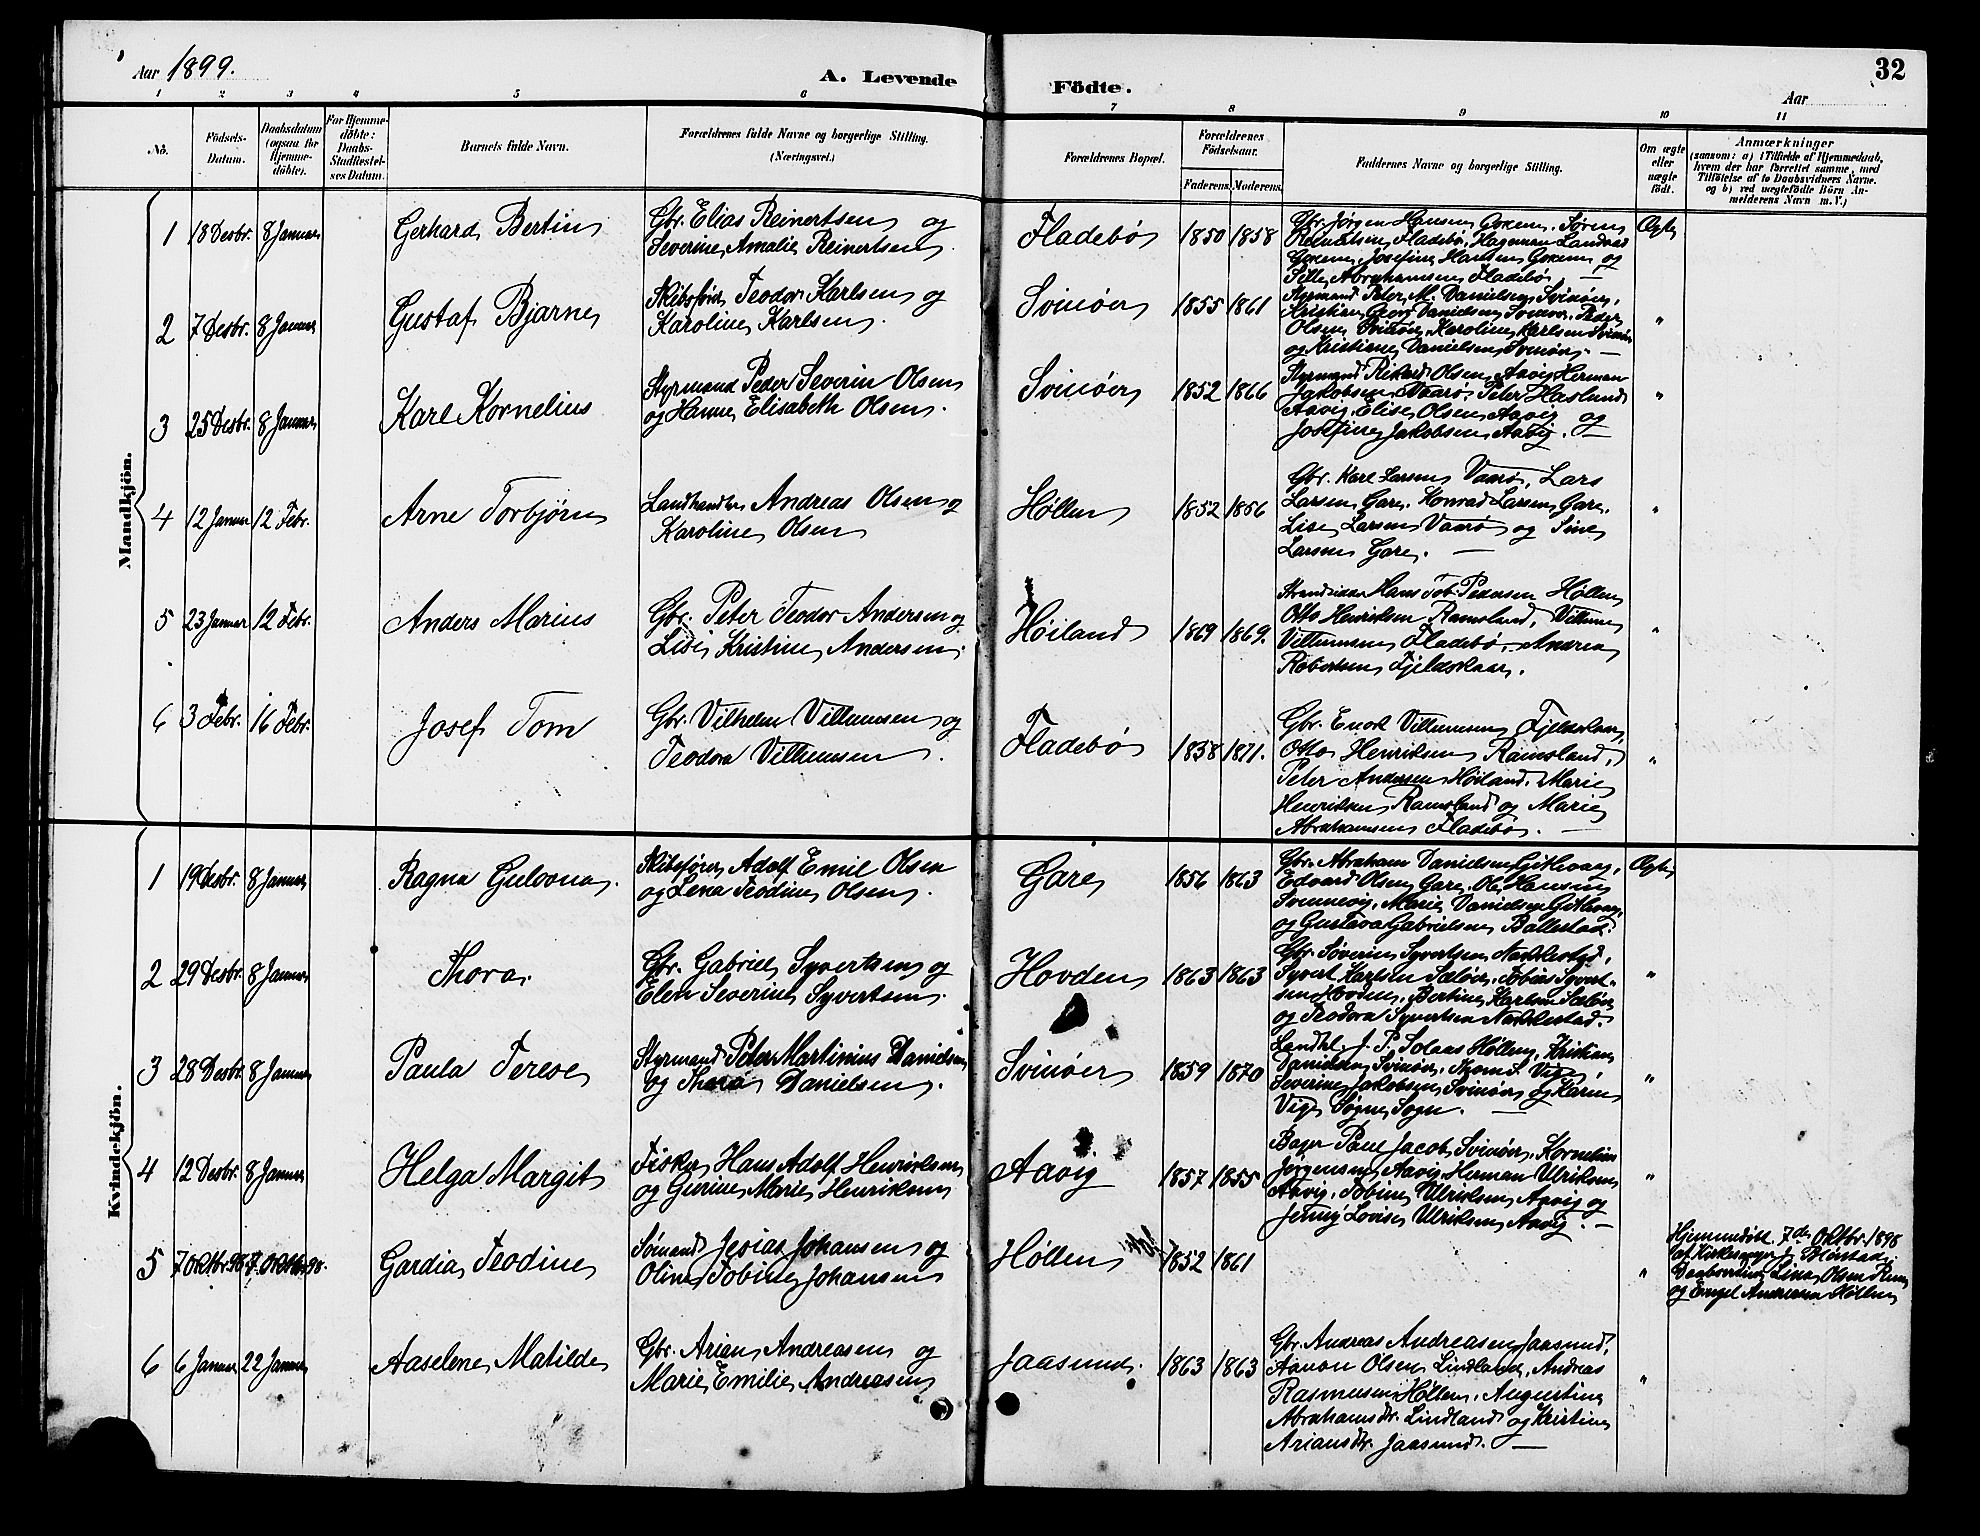 Aar 1899.
A. Levende Födte.
32
Aar
1 2 3 4 5 6 7 8 9 10 11
No.
Födsels-Datum.
Daabsdatum (ogsaa for Hjemme-döbte).
For Hjemme-döbte: Daabs-Stadfæstel-ses Datum.
Barnets fulde Navn.
Forældrenes fulde Navne og borgerlige Stilling. (Næringsvei.)
Forældrenes Bopæl.
Forældrenes Födselsaar.
Faderens. Moderens.
Faddernes Navne og borgerlige Stilling.
Om ægte eller uægte födt.
Anmærkninger
(saasom: a) i Tilfælde af Hjemmedaab,
hvem der har forrettet samme, med
Tilföielse af to Daabsvidners Navne.
og b) ved uægtefödte Börn An-
melderens Navn m. V.)
Mandkjön.
1 18 Desbr. 8 Januar Gerhard Bertin Gbr. Elias Reinertsen og
Severine Amalie Reinertsen. Fladebø 1850 1858 Gbr. Jørgen Hansen, Søren
Reinertsen Fladebø,
Josefine Hansen og
Abrahamsen Fladebø. Ægte
2 7 Desbr. 8 Januar Gustaf Bjarne Skibsfører Teodor Karlsen og
Karoline Karlsen. Svinøer 1855 1861 Styrmand Peter M. Danielsen Svinøer,
Kristian Georg Danielsen Svinøer, Peder
Olsen Svinøer, Karoline Karlsen Svinøer
og Kristiane Danielsen Svinøer. "
3 25 Desbr. 8 Januar Karl Kornelius Styrmand Peder Severin Olsen
og Hanne Elisabeth Olsen. Svinøer 1852 1866 Styrmand Rikard Olsen Aavig, Herman
Jakobsen Vaarø, Peter Haaland
Aavig, Elise Olsen Aavig og
Josefine Jakobsen Aavig. "
4 12 Januar 12 Febr. Arne Torbjørn Landhandler Andreas Olsen og
Karoline Olsen Høllen 1852 1856 Gbr. Karl Larsen Vaarø, Lars
Larsen Gare, Konrad Larsen Gare,
Lise Larsen Vaarø og Sine
Larsen Gare. "
5 23 Januar 12 Febr. Anders Marius Gbr. Peter Teodor Andersen og
Lise Kristine Andersen. Høiland 1869 1869. Strandsidder Hans Tob. Pedersen Høllen
Otto Henriksen Ramsland, Villum
Villumsen Fladebø, Andrea
Robertsen Fjeldskaar. "
6 3 Febr. 16 Febr. Josef Tom Gbr. Vilhelm Villumsen og
Teodora Villumsen. Fladebø 1838 1871. Gbr. Enok Villumsen Fjeldskaar,
Otto Henriksen Ramsland,
Peter Andersen Høiland, Marie
Henriksen Ramsland og Marie
Abrahamsen Fladebø. "
Kvindekjön.
1 19 Desbr. 8 Januar Ragna Gulovna. Skibsfører Adolf Emil Olsen
og Lena Teodine Olsen. Gare 1856 1863 Gbr. Abraham Danielsen,
Edvard Olsen Gare, Ole Hansen
Svennevig, Marie Danielsen
og Gustava Gabrielsen Ballestad. Ægte
2 29 Desbr. 8 Januar Thora. Gbr. Gabriel Syvertsen og
Elen Severine Syvertsen. Hovden 1863 1863 Gbr. Søverin Syvertsen,
Syvert Karlsen Sæløer, Tobias Syvert-
sen Hovden, Bertine Karlsen Sæløer
og Teodora Syvertsen. "
3 28 Desbr. 8 Januar Paula Terese Styrmand Peter Martinius Danielsen
og Thora Danielsen. Svinøer 1859 1870 Landhl. J. P. Solaas Høllen, Kristian
Danielsen Svinøer, Thom S. Vige,
Severine Jakobsen Svinøer og Karin
Vige Søgne Sogn. "
4 12 Desbr. 8 Januar Helga Margit Fisker Hans Adolf Henriksen
og Gurine Marie Henriksen Aavig 1857 1855 Bager Paul Jacob Svinøer, Kornelius
Jørgensen Aavig, Herman Ulriksen
Aavig, Tobine Ulriksen Aavig og
Jenny Lovise Ulriksen Aavig. "
5 7 Oktbr. 98 7. Oktbr. 98. Gardia Teodine Sømand Jesias Johansen og
Oline Tobine Johansen Høllen 1852 1861 " Hjemmedøbt 7de Oktbr. 1898
af Kirkesanger J.
Lina Olsen
og Engel Andersen Høllen
6 6 Januar 22 Januar Aaselene Matilde Gbr. Arian Andreasen og
Marie Emilie Andreasen Jaasund. 1863 1863 Gbr. Andreas Andreasen Jaasund,
Aanon Olsen Lindland, Andreas
Rasmussen Høllen, Augustine
Abrahamsdr. Lindland og Kristine
Ariansdr. Jaasund. "